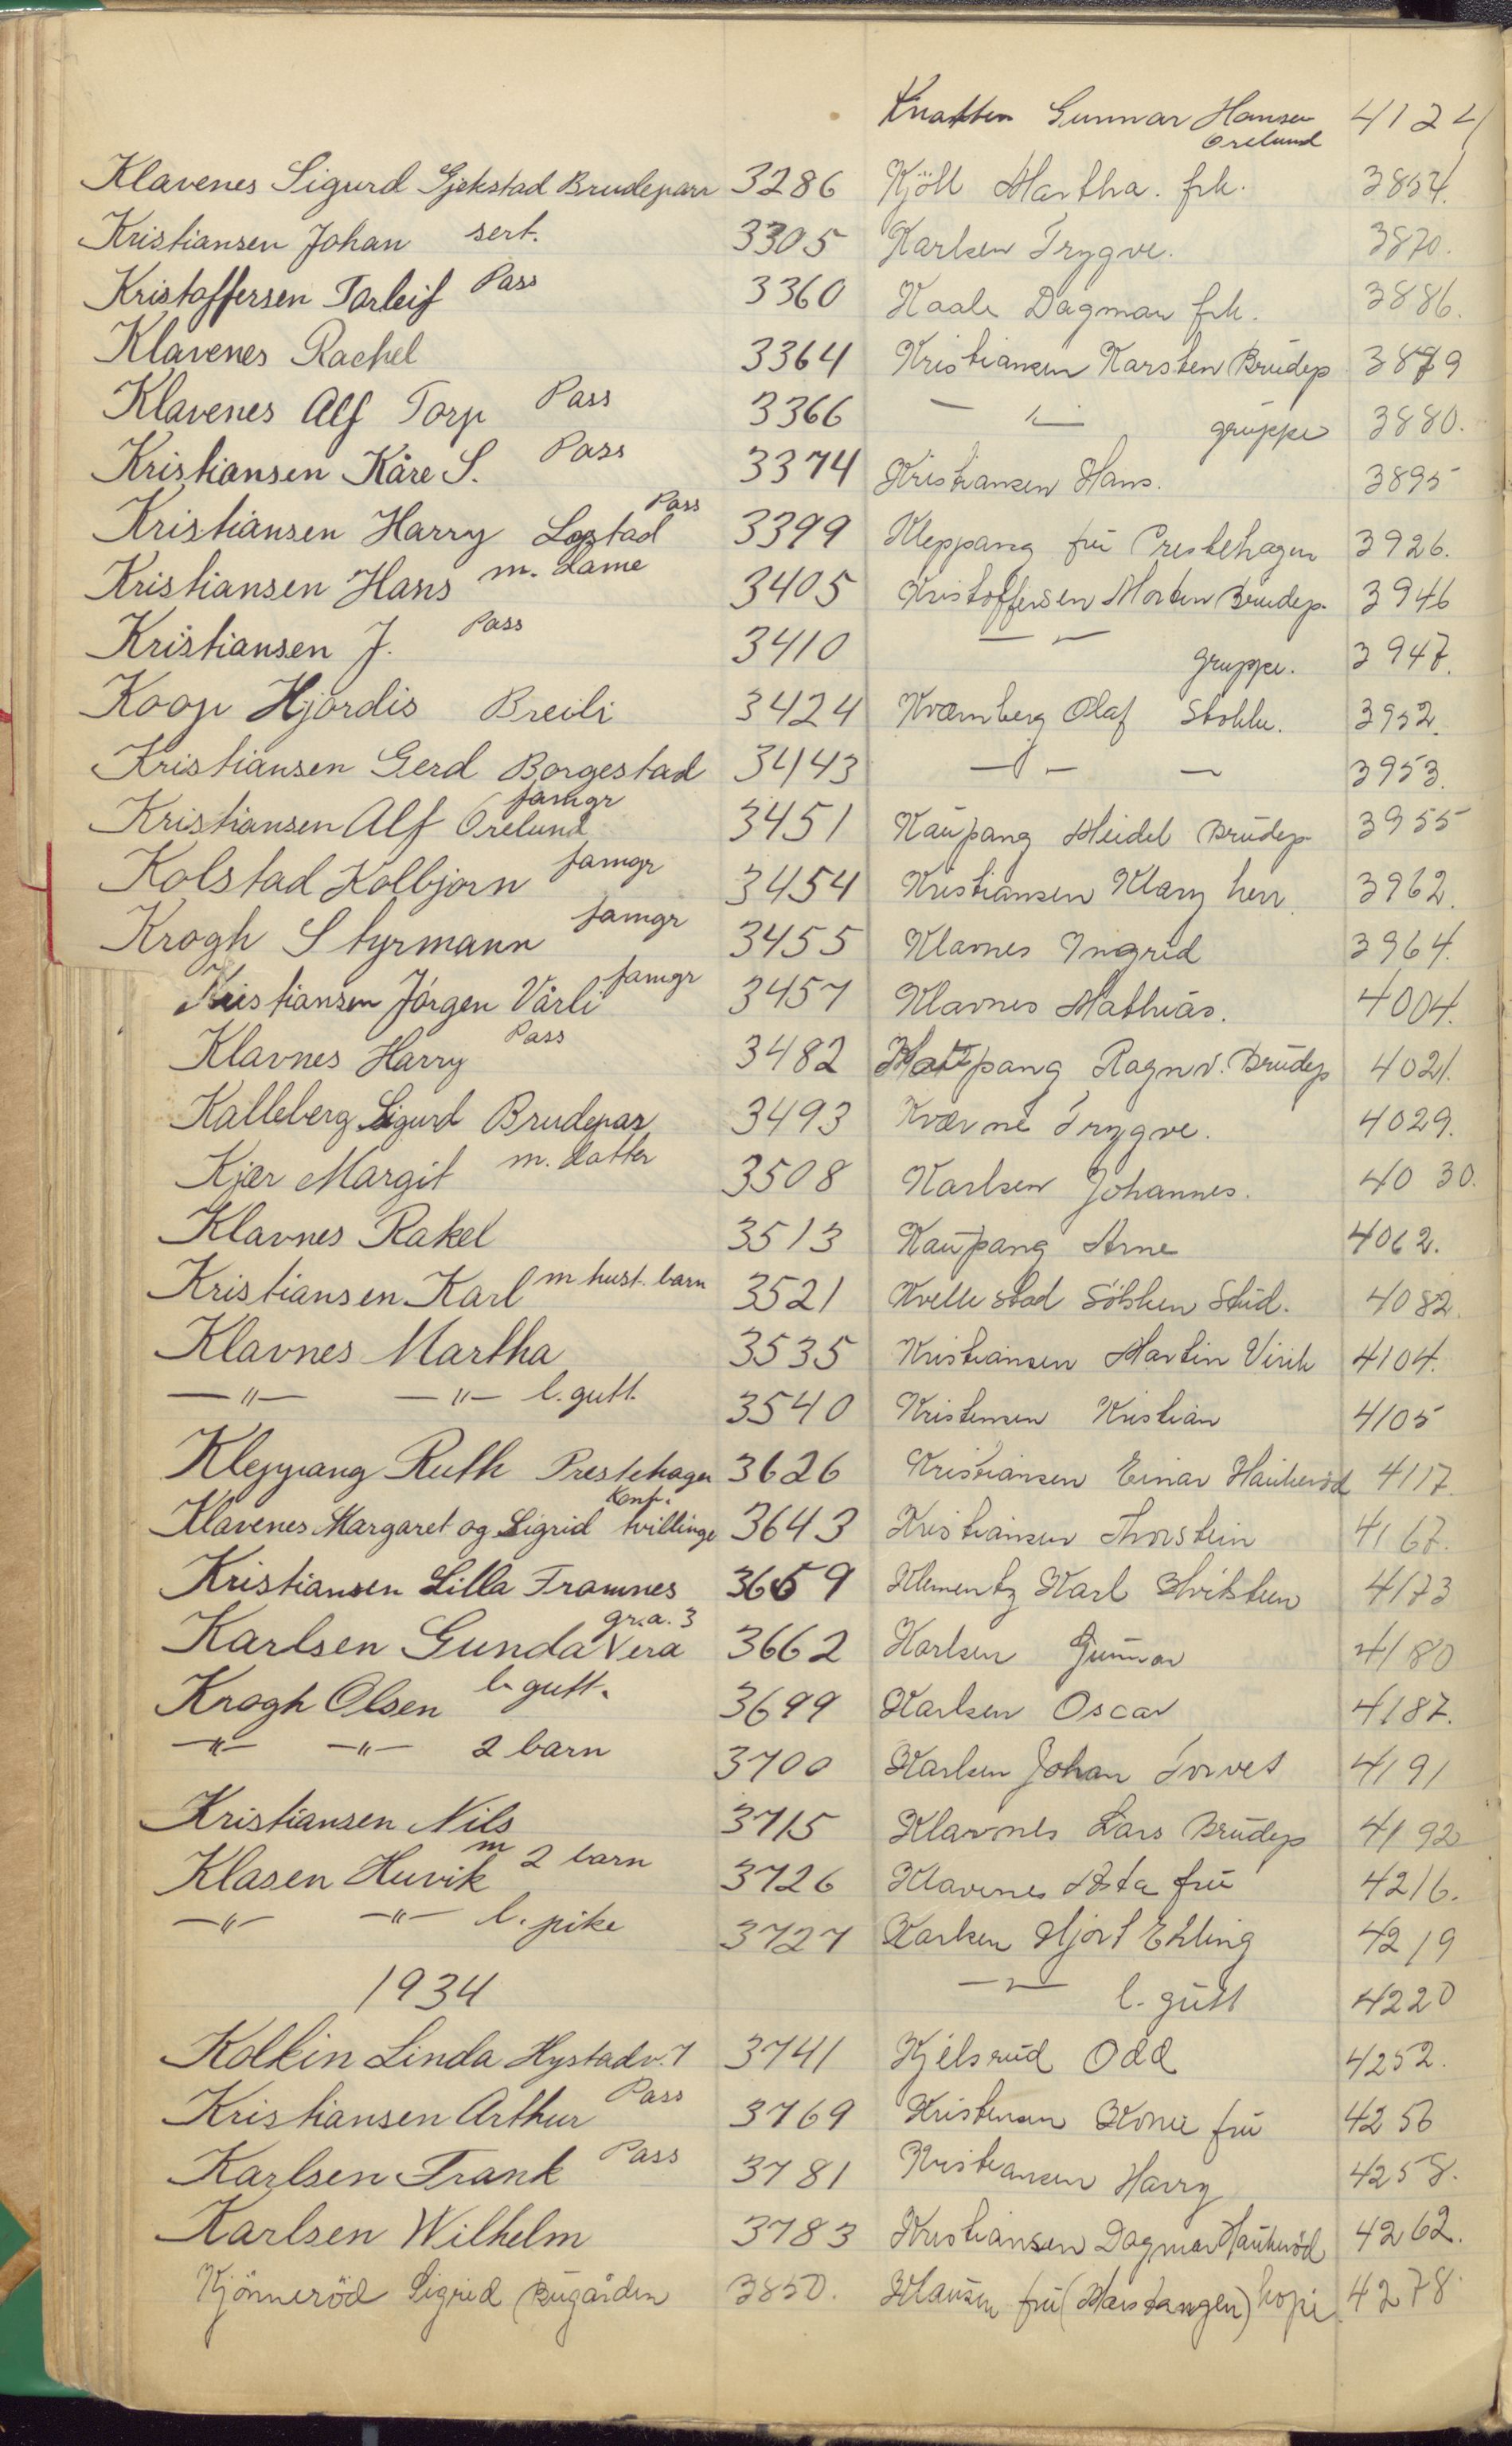 Klavenes Sigurd Gjekstad Brudepar 3286
Kristiansen Johan sert. 3305
Kristoffersen Torleif Pass 3360
Klavenes Rachel 3364
Klavenes Alf Torp Pass 3366
Kristiansen Kåre S. Pass 3374
Kristiansen Harry Pass 3399
Kristiansen Hans m. dame 3405
Kristiansen J. Pass 3410
Koop Hjørdis Breili 3424
Kristiansen Gerd Borgestad 3443
Kristiansen Alf Orelund famgr 3451
Kolstad Kolbjørn famgr 3454
Krogh Styrmann famgr 3455
Kristiansen Jørgen Vårli famgr 3457
Klavnes Harry Pass 3482
Kalleberg Sigurd Brudepar 3493
Kjær Margit m. datter 3508
Klavnes Rakel 3513
Kristiansen Karl m hust. barn 3521
Klavnes Martha 3535
—"— —"— l. gutt. 3540
Kleppang Ruth Prestehagen 3626
Klavenes Margaret og Sigrid tvillinge Konf. 3643
Kristiansen Lilla Framnes 3659
Karlsen Gunda Vera gr.a. 3 3662
Krogh Olsen l. gutt. 3699
—"— —"— 2 barn 3700
Kristiansen Nils 3715
Klasen Huvik m 2 barn 3726
—"— —"— l. pike 3727
1934
Kolkin Linda Hystadv. 7 3741
Kristiansen Arthur Pass 3769
Karlsen Frank Pass 3781
Karlsen Wilhelm 3783
Kjönneröd Sigrid Bugården 3850.
Knatten Gunnar Hansen Orelund 4124
Kjöll Martha. frk. 3854.
Karlsen Trygve. 3870.
Kaale Dagmar frk. 3886.
Kristiansen Karsten Brudep 3879
— " — gruppe 3880.
Kristiansen Hans. 3895
Kleppang fru Prestehagen 3926.
Kristoffersen Morten Brudep. 3946
— " — gruppe. 3947.
Kværnberg Olaf Stokke. 3952.
— " — — 3953.
Kaupang Meidel Brudep 3955
Kristiansen Klary herr. 3962.
Klavnes Ingrid 3964.
Klavnes Mathias. 4004.
Kaupang Ragnv. Brudep 4021.
Kværne Trygve. 4029.
Karlsen Johannes. 4030.
Kaupang Arne 4062.
Kvellestad Sösken Stud. 4082.
Kristiansen Martin Virik 4104.
Kristensen Kristian 4105
Kristiansen Einar Haukeröd 4117.
Kristiansen Thorstein 4167.
Klementz Karl 4173
Karlsen Gunnar 4180
Karlsen Oscar 4187.
Karlsen Johan Torvet 4191
Klavnes Lars Brudep 4192
Klavenes Asta fru 4216.
Karlsen Hjort Ehling 4219
— " — l. gutt 4220
Kjelsrud Odd 4252.
Kristensen fru 4256
Kristiansen Harry 4258.
Kristiansen Dagmar Haukeröd 4262.
Klausen fru (Marstangen) kopi 4278